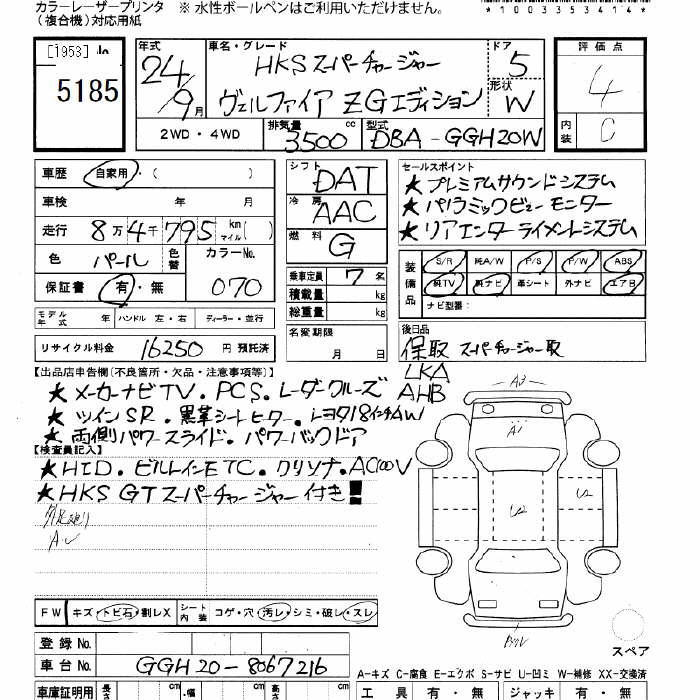 カラーレーザープリンタ ※ 水性ボールペンはご利用いただけません。
(複合機)対応用紙
*1003353414*
[1953]
5185
年式 24/9月
車名・グレード HKSスーパーチャージャー
ヴェルファイア ZGエディション
ドア 5
形状 W
評価点 4
内装 C
2WD・4WD
排気量 3500 cc
型式 DBA-GGH20W
車歴 自家用・( )
車検 年 月
走行 8万4千795 km マイル( )
色 パール 色替 カラーNo. 070
保証書 有・無
シフト DAT
冷房 AAC
燃料 G
乗車定員 7 名
積載量 kg
総重量 kg
セールスポイント
★プレミアムサウンドシステム
★パノラミックビューモニター
★リアエンターテイメントシステム
装備品 S/R 純A/W P/S P/W ABS
純TV 純ナビ 革シート 外ナビ エアB
ナビ型番:
モデル年式 年 ハンドル 左・右 ディーラー・並行
リサイクル料金 16250 円 預託済
名変期限 月 日
後日品
保取 スーパーチャージャー取
【出品店申告欄(不良箇所・欠品・注意事項等)】
LKA
★メーカーナビTV. PCS. レーダークルーズ AHB
★ツインSR. 黒革シートヒーター. レヨタ18インチAW
★両側パワースライド. パワーバックドア
【検査員記入】
★HID. ビルトインETC. クリソナ. AC100V
★HKS GTスーパーチャージャー付き!
A3
A1
U2
U2
FW キズ・トビ石・割レX シート内装 コゲ・穴・汚レ・シミ・破レ・スレ
登録No.
車台No. GGH20-8067216
スペア
A-キズ C-腐食 E-エクボ S-サビ U-凹ミ W-補修 XX-交換済
車庫証明用 長さ cm ・幅 cm cm
工具 有・無 ジャッキ 有・無